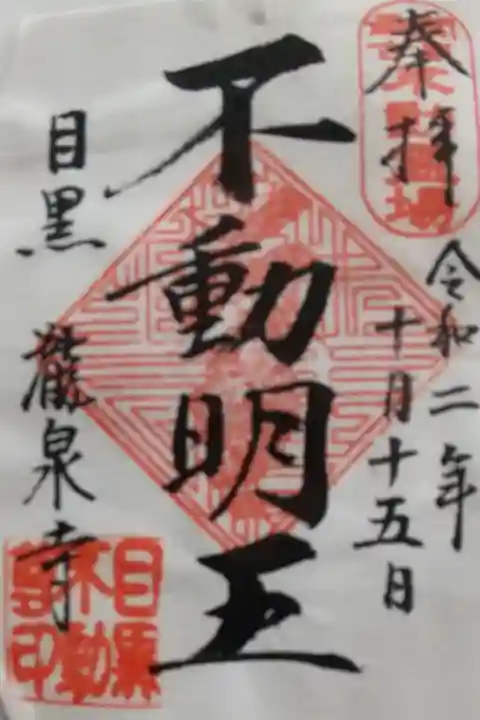 奉拝
令和二年
十月十五日
不動明王
目黒 瀧泉寺
目黒
不動